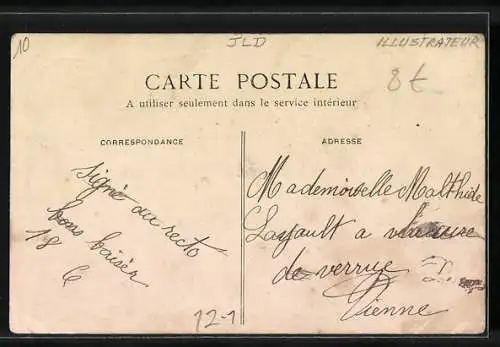 10
JLD
ILLUSTRATEUR
8€
CARTE POSTALE
A utiliser seulement dans le service intérieur
CORRESPONDANCE
ADRESSE
signé au recto
bons baiser
18 C
Mademoiselle Malthide
Lassault a
de verrue
Vienne
12-1